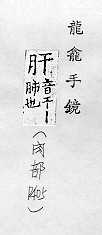 龍龕手鏡
肝
音干丨
肺也
(肉部
P405)